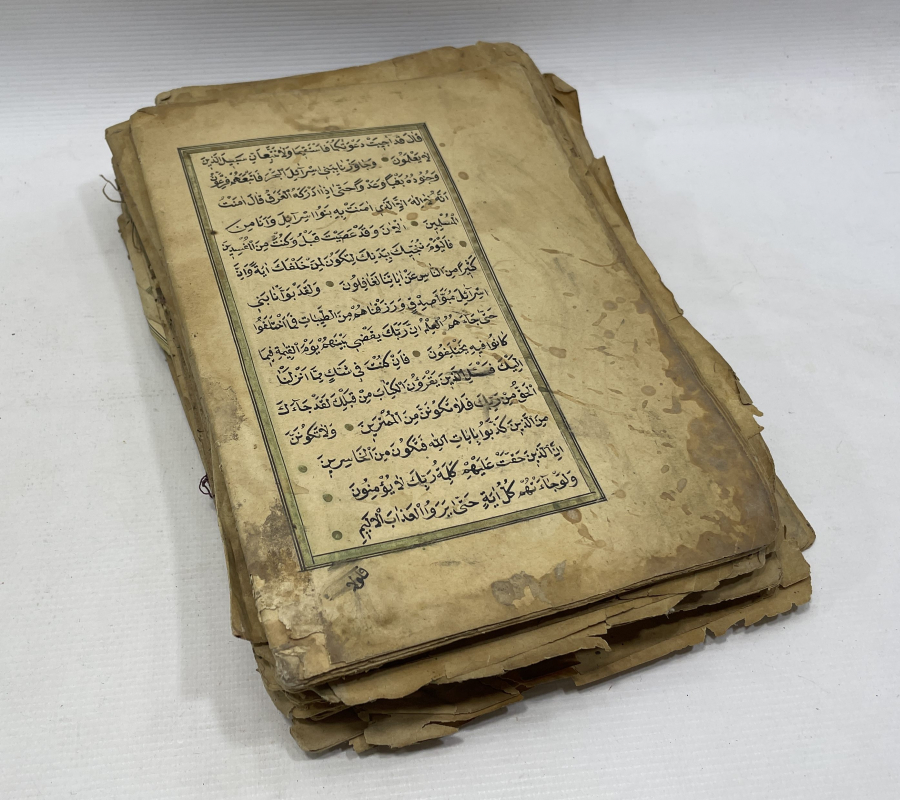 قَالَ قَدْ اُجِيبَتْ دَعْوَتُكُمَا فَاسْتَقِيمَا وَلَا تَتَّبِعَانِّ سَبِيلَ الَّذِينَ
لَا يَعْلَمُونَ وَجَاوَزْنَا بِبَنِي اِسْرَائِلَ الْبَحْرَ فَاَتْبَعَهُمْ فِرْعَوْنُ
وَجُنُودُهُ بَغْيًا وَعَدْوًا حَتَّى اِذَا اَدْرَكَهُ الْغَرَقُ قَالَ اٰمَنْتُ
اَنَّهُ لَا اِلٰهَ اِلَّا الَّذِي اٰمَنَتْ بِهِ بَنُوا اِسْرَائِلَ وَاَنَا مِنَ
الْمُسْلِمِينَ اٰلْاٰنَ وَقَدْ عَصَيْتَ قَبْلُ وَكُنْتَ مِنَ الْمُفْسِدِينَ
فَالْيَوْمَ نُنَجِّيكَ بِبَدَنِكَ لِتَكُونَ لِمَنْ خَلْفَكَ اٰيَةً وَاِنَّ
كَثِيرًا مِنَ النَّاسِ عَنْ اٰيَاتِنَا لَغَافِلُونَ وَلَقَدْ بَوَّأْنَا بَنِي
اِسْرَائِلَ مُبَوَّاَ صِدْقٍ وَرَزَقْنَاهُمْ مِنَ الطَّيِّبَاتِ فَمَا اخْتَلَفُوا
حَتَّى جَاءَهُمُ الْعِلْمُ اِنَّ رَبَّكَ يَقْضِي بَيْنَهُمْ يَوْمَ الْقِيٰمَةِ فِيمَا
كَانُوا فِيهِ يَخْتَلِفُونَ فَاِنْ كُنْتَ فِي شَكٍّ مِمَّا اَنْزَلْنَا
اِلَيْكَ فَسْئَلِ الَّذِينَ يَقْرَؤُنَ الْكِتَابَ مِنْ قَبْلِكَ لَقَدْ جَاءَكَ
الْحَقُّ مِنْ رَبِّكَ فَلَا تَكُونَنَّ مِنَ الْمُمْتَرِينَ وَلَا تَكُونَنَّ
مِنَ الَّذِينَ كَذَّبُوا بِاٰيَاتِ اللّٰهِ فَتَكُونَ مِنَ الْخَاسِرِينَ
اِنَّ الَّذِينَ حَقَّتْ عَلَيْهِمْ كَلِمَةُ رَبِّكَ لَا يُؤْمِنُونَ
وَلَوْ جَاءَتْهُمْ كُلُّ اٰيَةٍ حَتَّى يَرَوُا الْعَذَابَ الْاَلِيمَ
فلولا